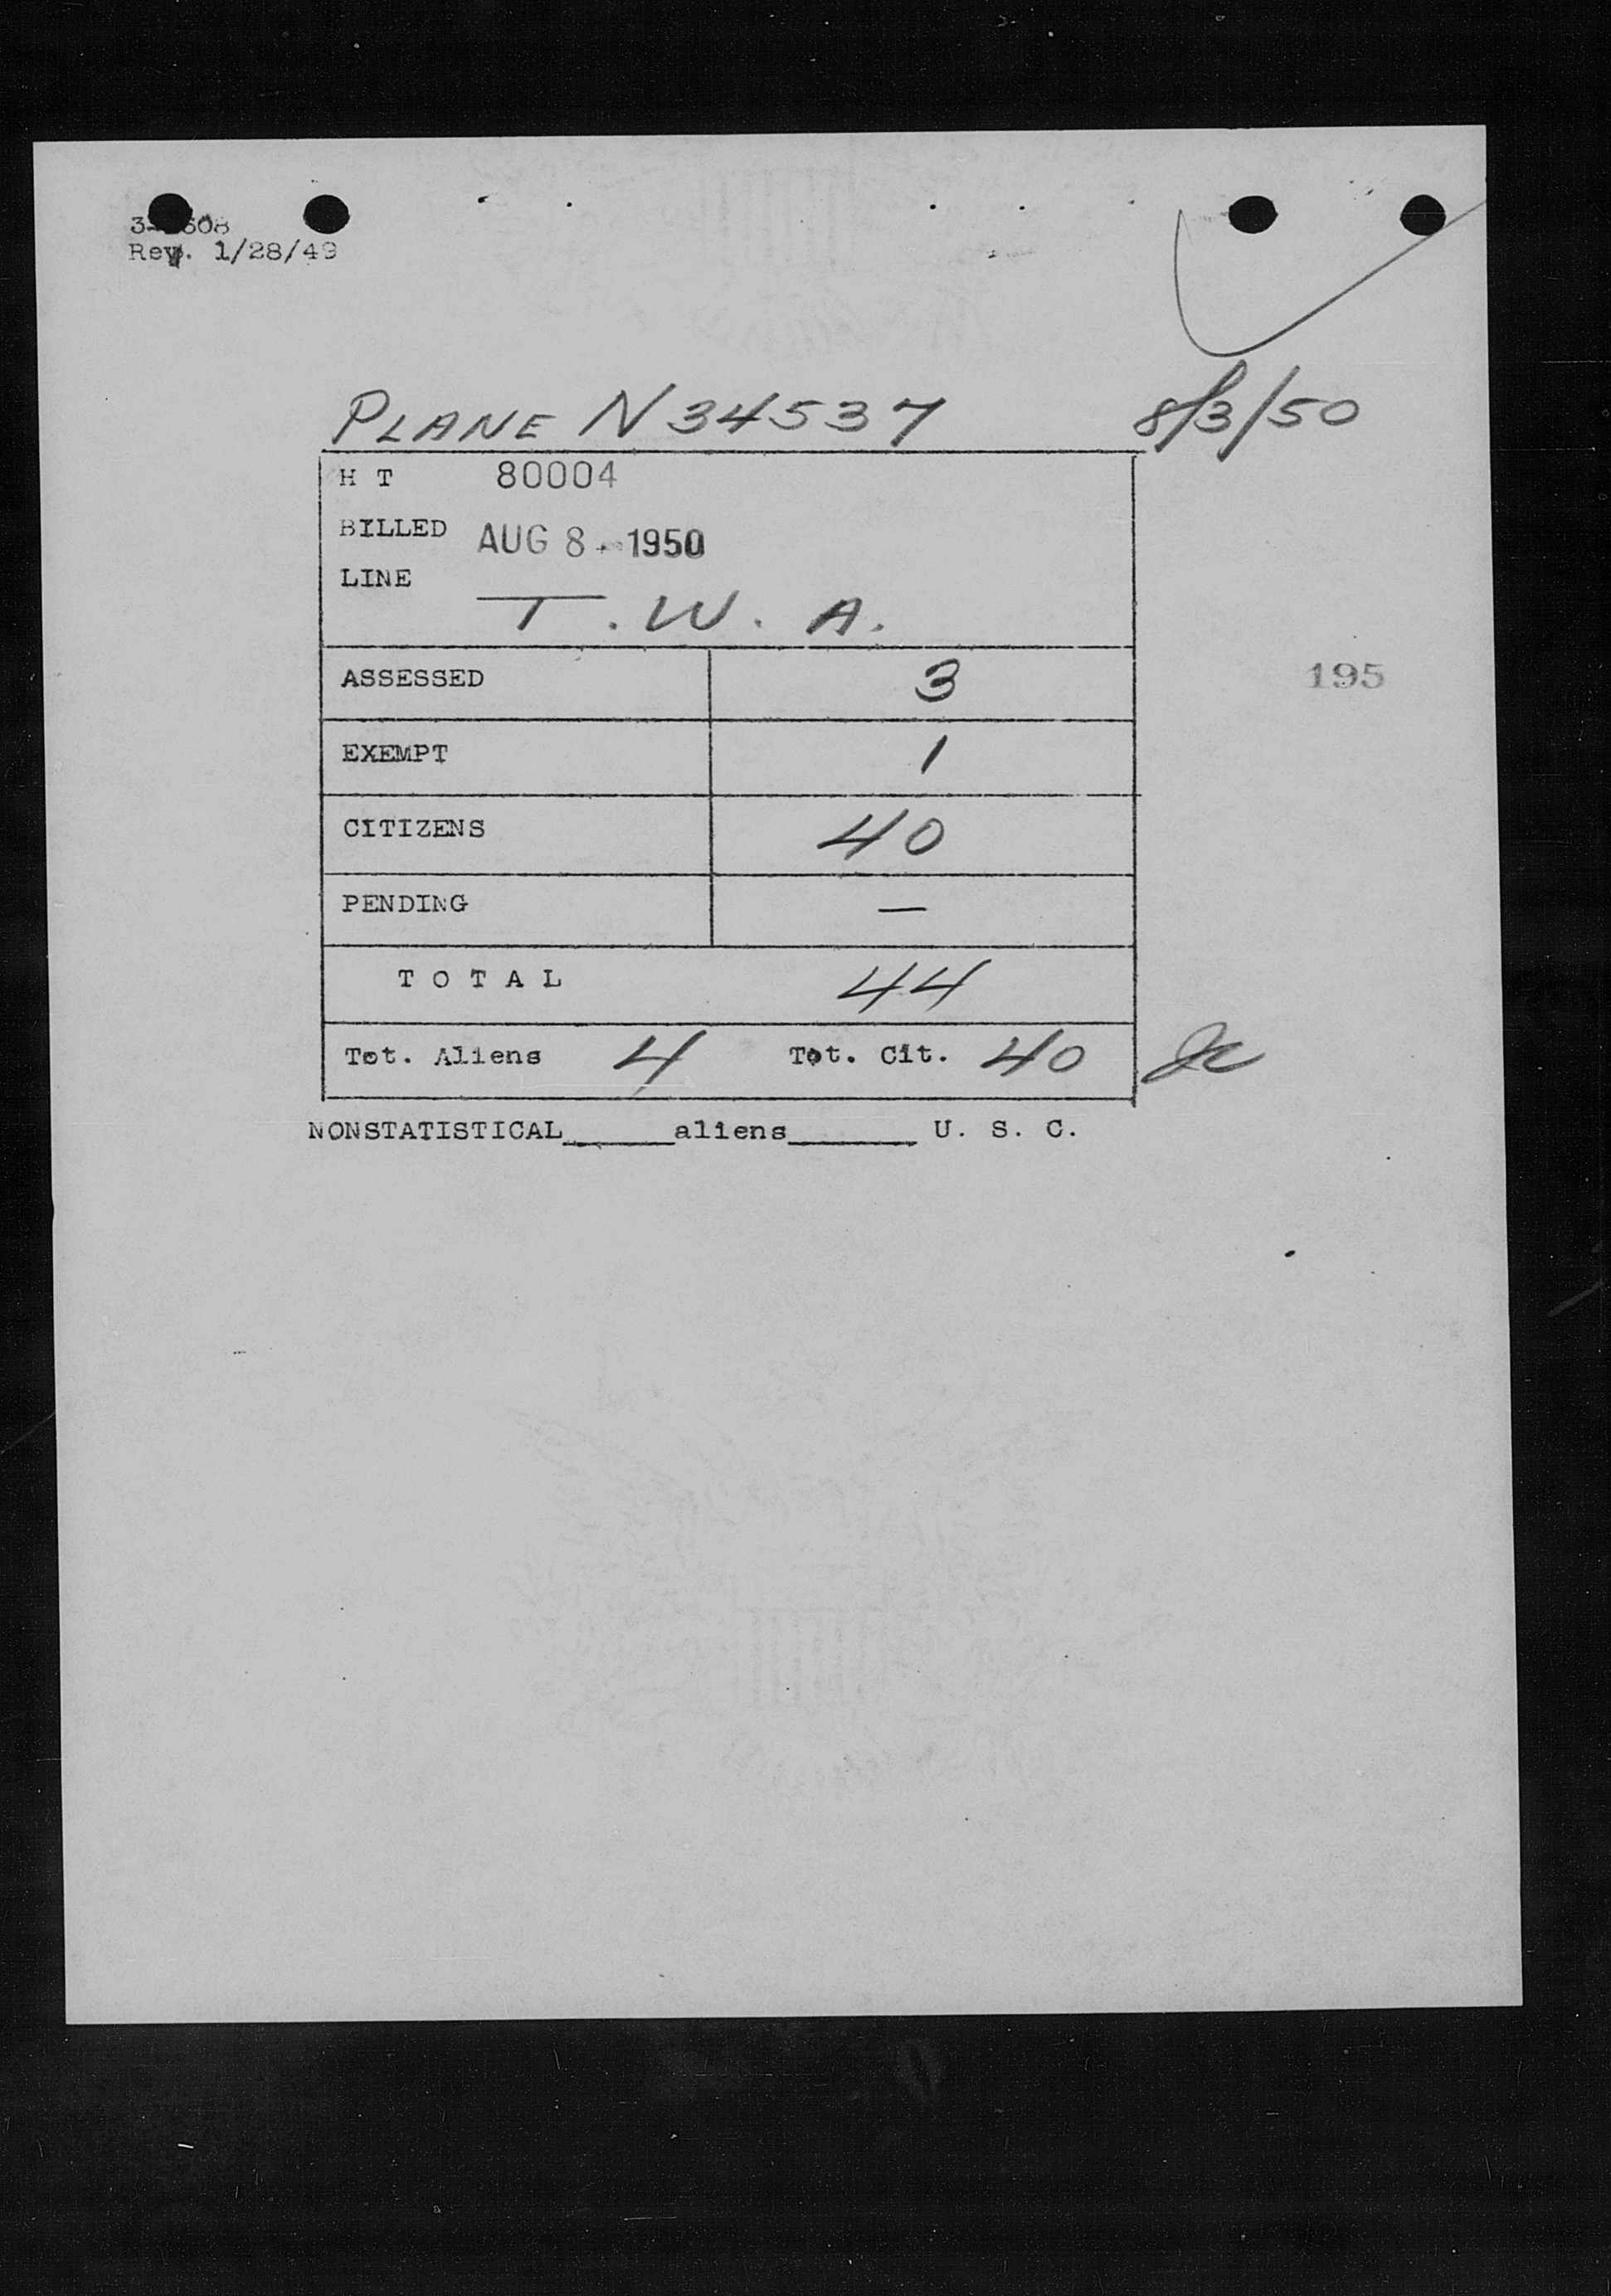 Rev. 1/28/49
PLANE N34537 8/3/50
H T 80004
BILLED AUG 8 - 1950
LINE
T. W. A.
ASSESSED 3
195
EXEMPT 1
CITIZENS 40
PENDING —
T O T A L 44
Tot. Aliens 4 Tot. Cit. 40
NONSTATISTICAL______aliens_______ U. S. C.